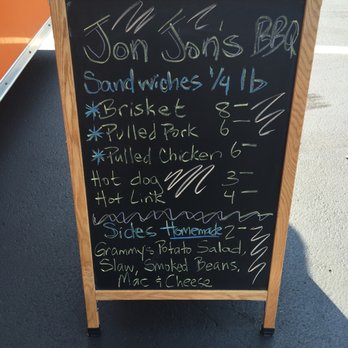 Jon Jon's BBQ
Sandwiches 1/4 lb
*Brisket 8-
*Pulled Pork 6-
*Pulled Chicken 6-
Hot dog 3-
Hot Link 4-
Sides Homemade 2-
Grammy's Potato Salad,
Slaw, Smoked Beans,
Mac & Cheese